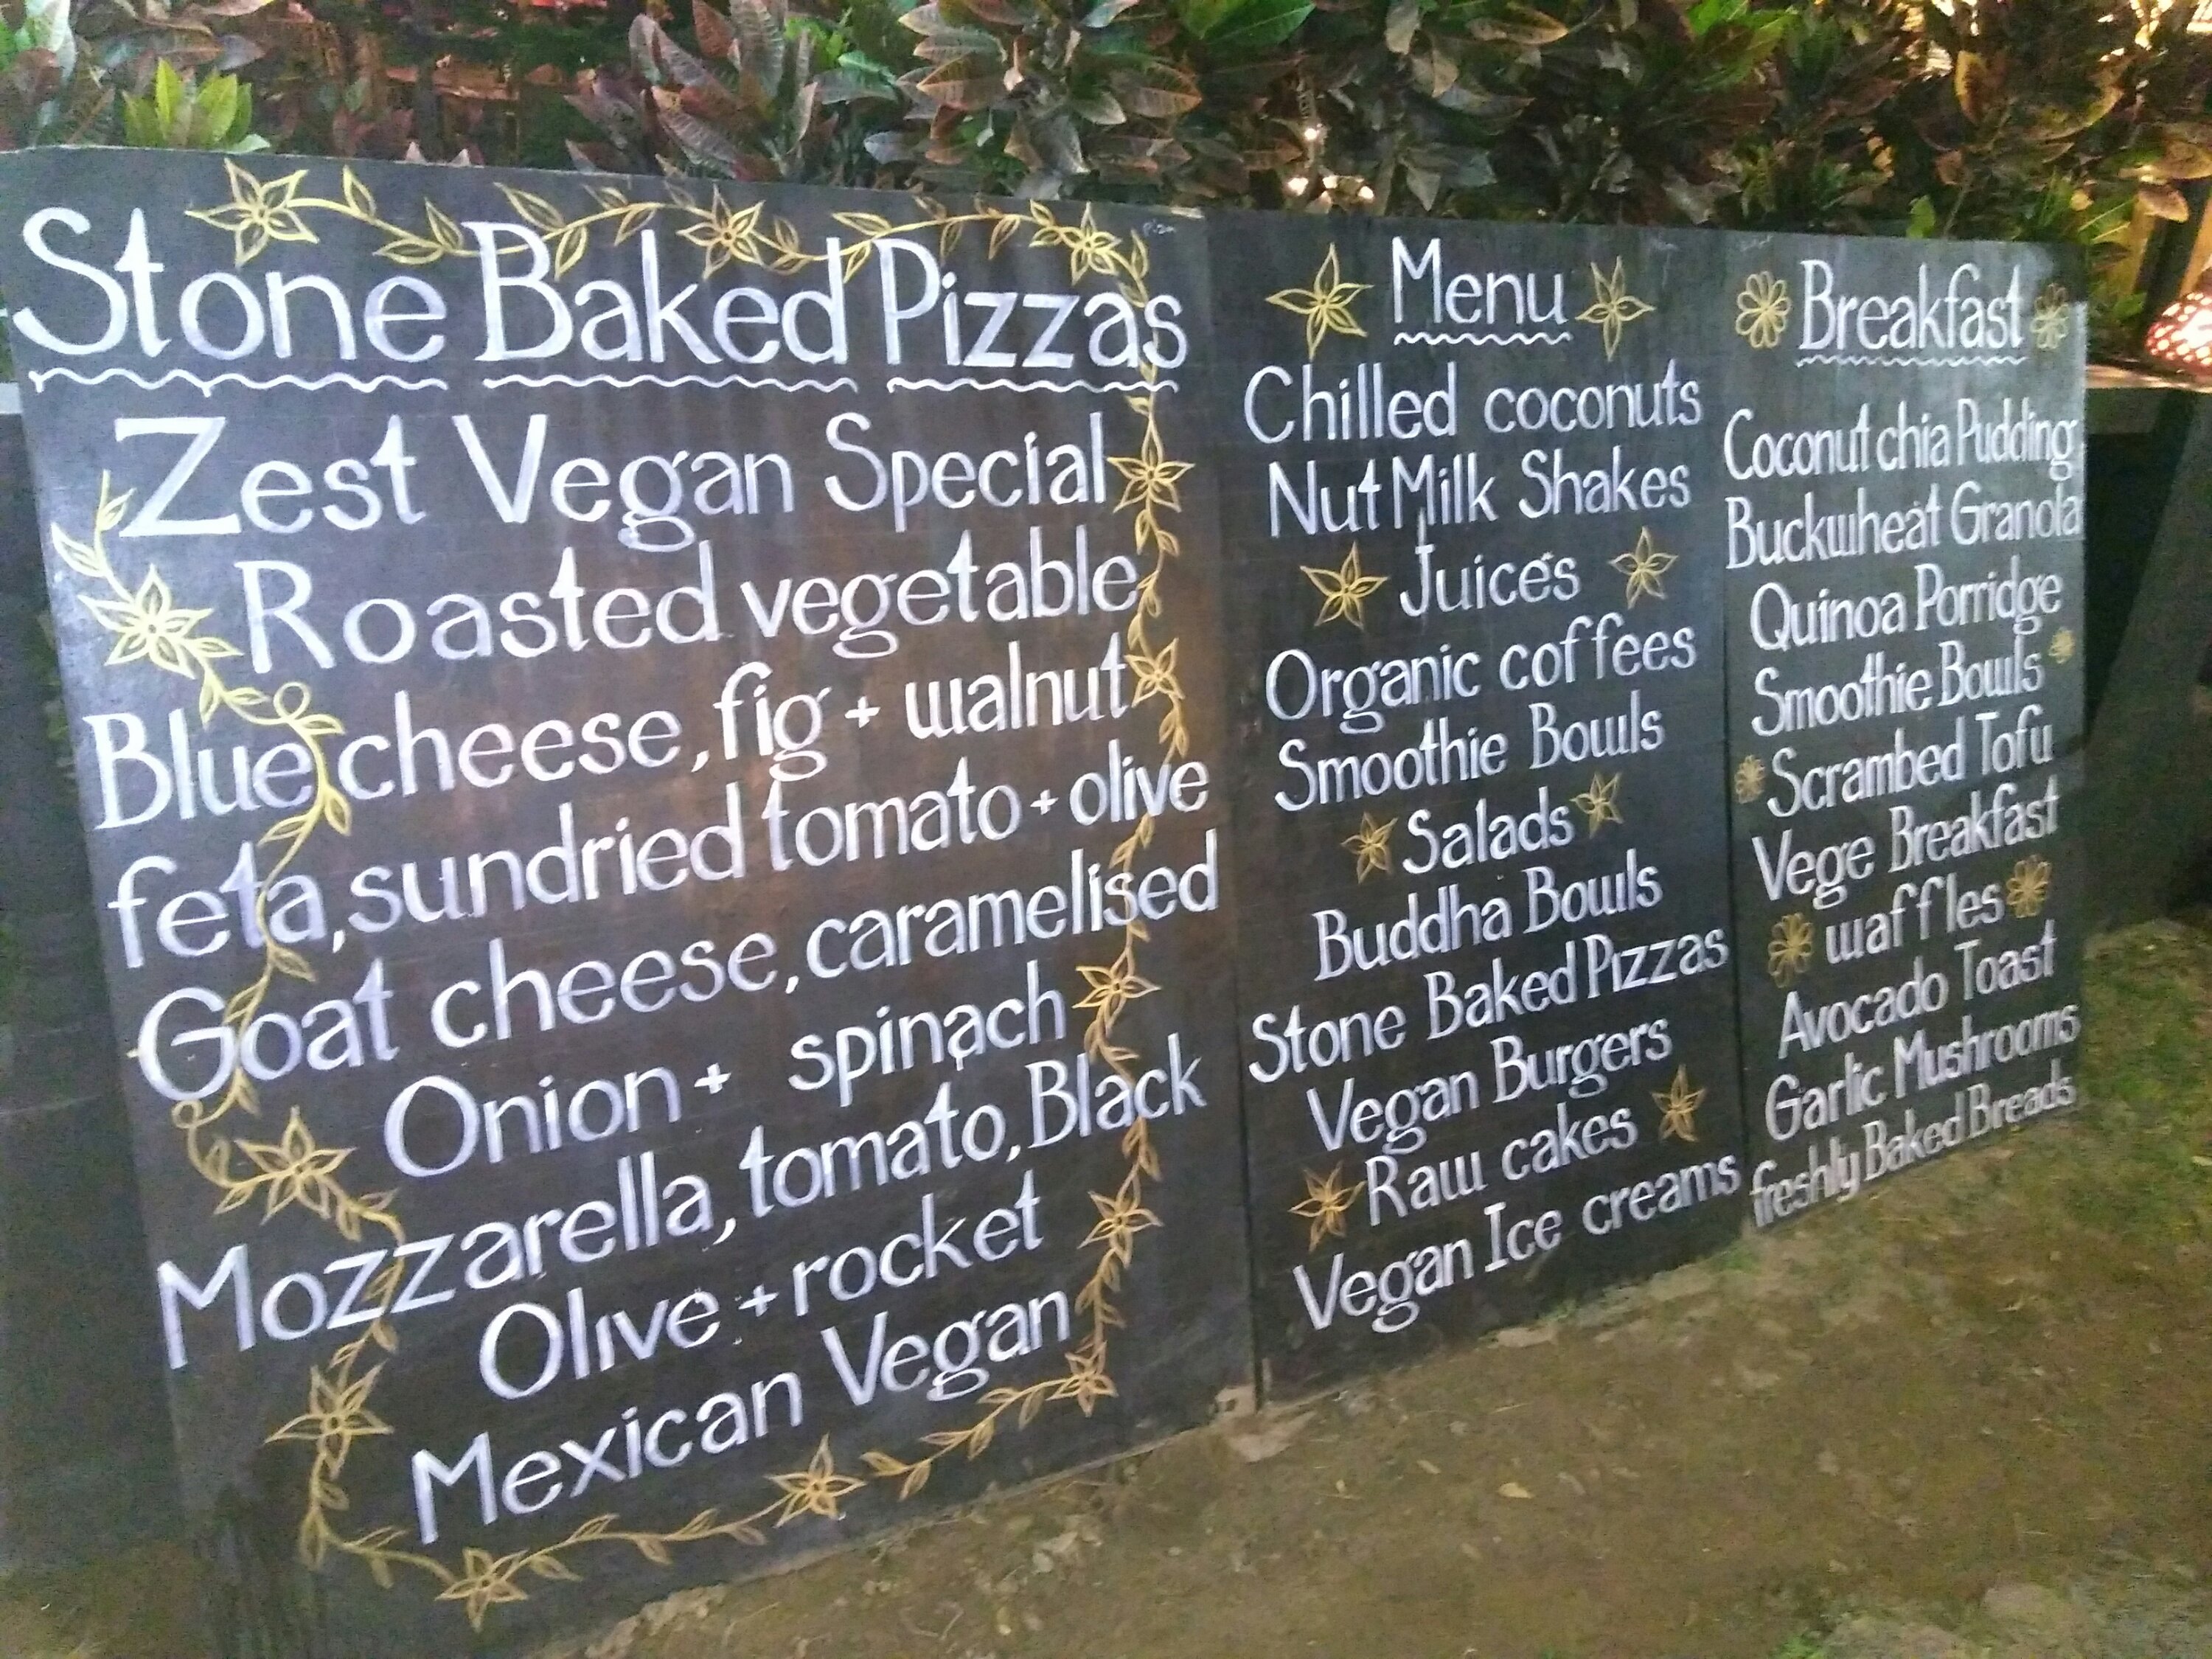 Stone Baked Pizzas
Zest Vegan Special
Roasted vegetable
Blue cheese, fig + walnut
feta, sundried tomato + olive
Goat cheese, caramelised
Onion + spinach
Mozzarella, tomato, Black
Olive + rocket
Mexican Vegan
Menu
Chilled coconuts
Nut Milk Shakes
Juices
Organic coffees
Smoothie Bowls
Salads
Buddha Bowls
Stone Baked Pizzas
Vegan Burgers
Raw cakes
Vegan Ice creams
Breakfast
Coconut chia Pudding
Buckwheat Granola
Quinoa Porridge
Smoothie Bowls
Scrambed Tofu
Vege Breakfast
waffles
Avocado Toast
Garlic Mushrooms
freshly Baked Breads